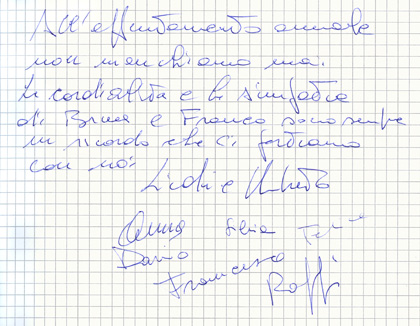 All'appuntamento annuale
non manchiamo mai.
La cordialità e la simpatia
di Bruna e Franco sono sempre
un ricordo che ci portiamo
con noi
Lidia e Umberto
Anna Silvia
Dario
Francesca